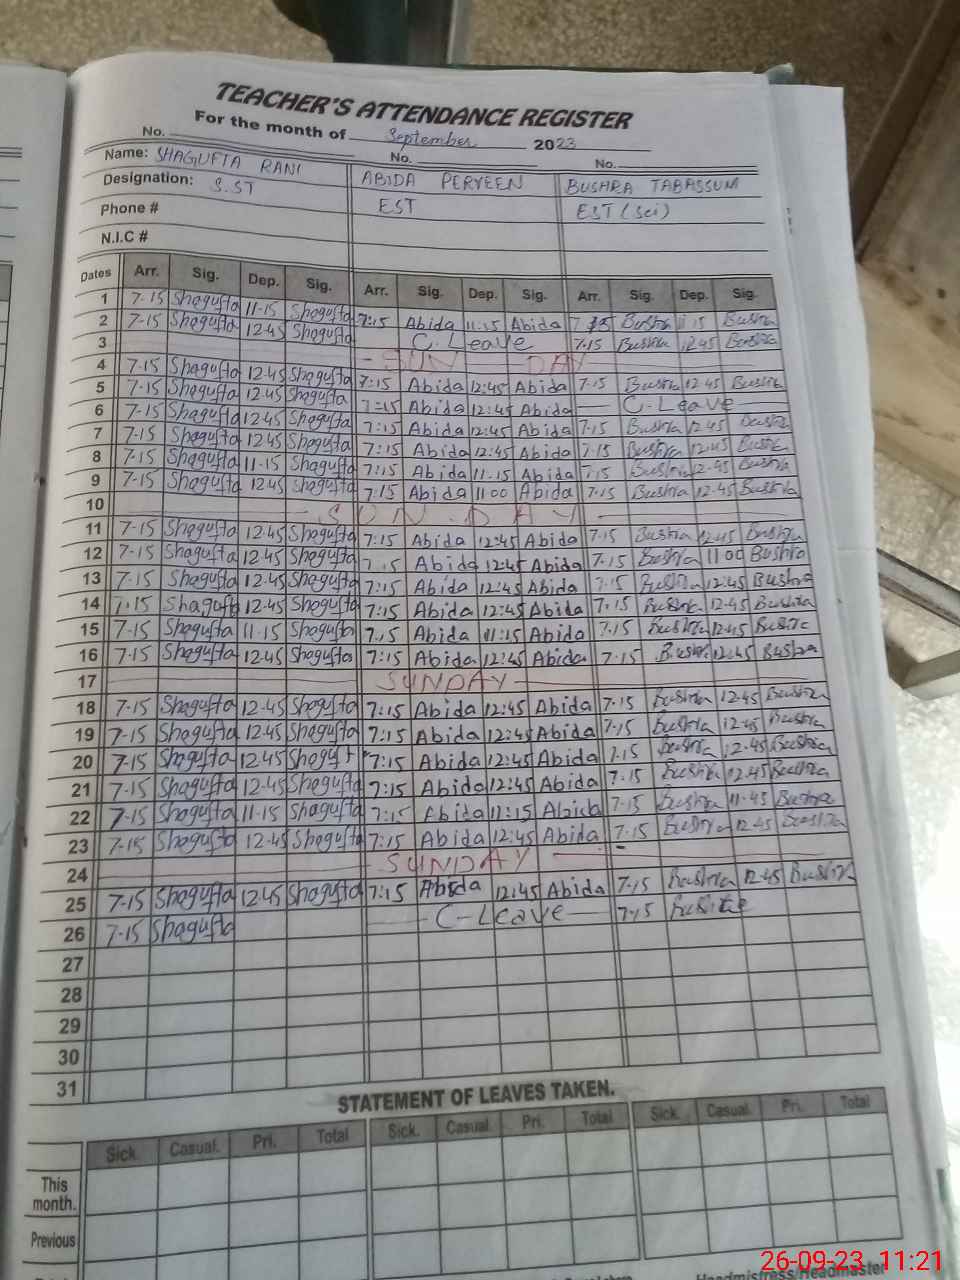 TEACHER'S ATTENDANCE REGISTER
For the month of September 2023
No. No. No.
Name: SHAGUFTA RANI ABIDA PERVEEN BUSHRA TABASSUM
Designation: S.ST EST EST (Sci)
Phone #
N.I.C #
Dates Arr. Sig. Dep. Sig. Arr. Sig. Dep. Sig. Arr. Sig. Dep. Sig.
1 7-15 Shagufta 11-15 Shagufta 7:15 Abida 11:15 Abida 7.15 Bushra 11.15 Bushra
2 7-15 Shagufta 12-45 Shagufta C. Leave 7.15 Bushra 12.45 Bushra
3 SUN DAY
4 7-15 Shagufta 12-45 Shagufta 7:15 Abida 12:45 Abida 7.15 Bushra 12.45 Bushra
5 7-15 Shagufta 12-45 Shagufta 7:15 Abida 12:45 Abida C. Leave
6 7-15 Shagufta 12-45 Shagufta 7:15 Abida 12:45 Abida 7.15 Bushra 12.45 Bushra
7 7-15 Shagufta 12-45 Shagufta 7:15 Abida 12:45 Abida 7.15 Bushra 12.45 Bushra
8 7-15 Shagufta 11-15 Shagufta 7:15 Abida 11.15 Abida 7.15 Bushra 12.45 Bushra
9 7-15 Shagufta 12.45 Shagufta 7:15 Abida 11:00 Abida 7.15 Bushra 12.45 Bushra
10 SUN DAY
11 7-15 Shagufta 12-45 Shagufta 7:15 Abida 12:45 Abida 7.15 Bushra 12.45 Bushra
12 7-15 Shagufta 12-45 Shagufta 7:15 Abida 12:45 Abida 7.15 Bushra 11.00 Bushra
13 7-15 Shagufta 12-45 Shagufta 7:15 Abida 12:45 Abida 7.15 Bushra 12.45 Bushra
14 7-15 Shagufta 12-45 Shagufta 7:15 Abida 12:45 Abida 7.15 Bushra 12.45 Bushra
15 7-15 Shagufta 11-15 Shagufta 7:15 Abida 11:15 Abida 7.15 Bushra 12.45 Bushra
16 7-15 Shagufta 12-45 Shagufta 7:15 Abida 12:45 Abida 7.15 Bushra 12.45 Bushra
17 SUNDAY
18 7-15 Shagufta 12-45 Shagufta 7:15 Abida 12:45 Abida 7.15 Bushra 12.45 Bushra
19 7-15 Shagufta 12-45 Shagufta 7:15 Abida 12:45 Abida 7.15 Bushra 12.45 Bushra
20 7-15 Shagufta 12-45 7:15 Abida 12:45 Abida 7.15 Bushra 12.45 Bushra
21 7-15 Shagufta 12-45 Shagufta 7:15 Abida 12:45 Abida 7.15 Bushra 12.45 Bushra
22 7-15 Shagufta 11-15 Shagufta 7:15 Abida 11:15 Abida 7.15 Bushra 11.45 Bushra
23 7-15 Shagufta 12-45 Shagufta 7:15 Abida 12:45 Abida 7.15 Bushra 12.45 Bushra
24 SUNDAY
25 7-15 Shagufta 12-45 Shagufta 7:15 Abida 12:45 Abida 7.15 Bushra 12.45 Bushra
26 7-15 Shagufta C-Leave 7.15 Bushra
27
28
29
30
31
STATEMENT OF LEAVES TAKEN.
Sick. Casual. Pri. Total Sick. Casual Pri. Total Sick. Casual. Pri. Total
This month.
Previous
Headmistress/Headmaster
26-09-23 11:21